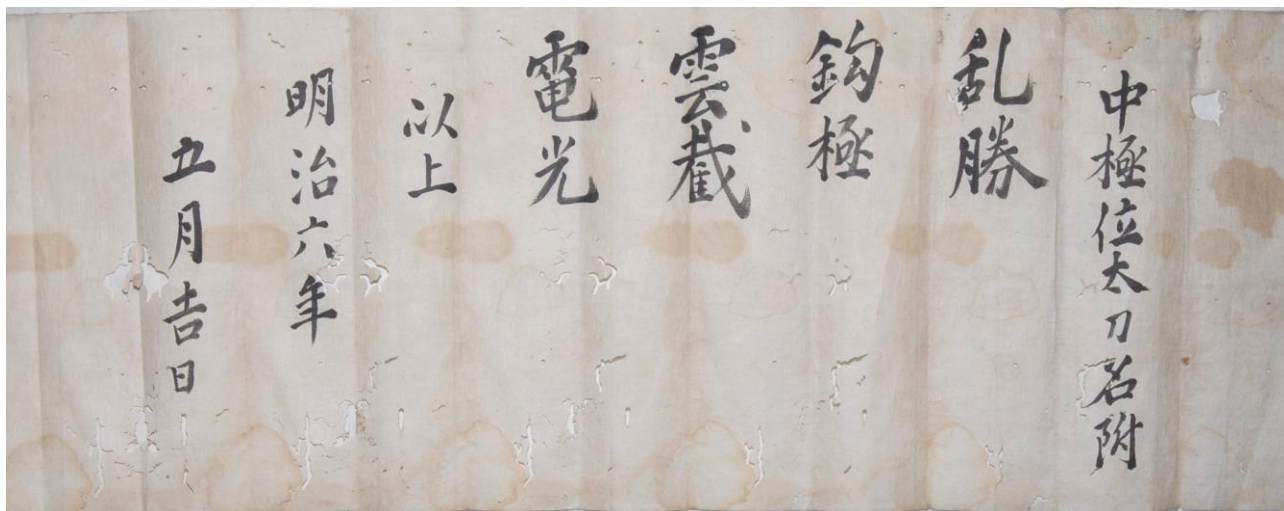 中極位太刀名附
乱勝
鈎極
雲截
電光
以上
明治六年
五月吉日